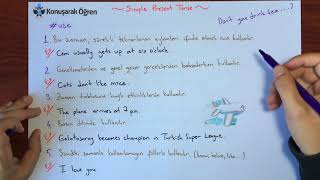 Konuşarak Öğren
~ Simple Present Tense ~
Don't you drink tea ....?
# use
1. Bu zaman, sürekli tekrarlanan eylemleri ifade etmek için kullanılır.
Cem usually gets up at six o'clock.
2. Genellemelerden ve genel geçer gerçeklerden bahsederken kullanılır.
Cats don't like mice.
3. Zaman tablosuna bağlı etkinliklerde kullanılır.
The plane arrives at 7 p.m.
4. Basın dilinde kullanılır.
Galatasaray becomes champion in Turkish Super League.
5. Şimdiki zamanla kullanılamayan fiillerle kullanılır. (know, believe, like...)
I love you